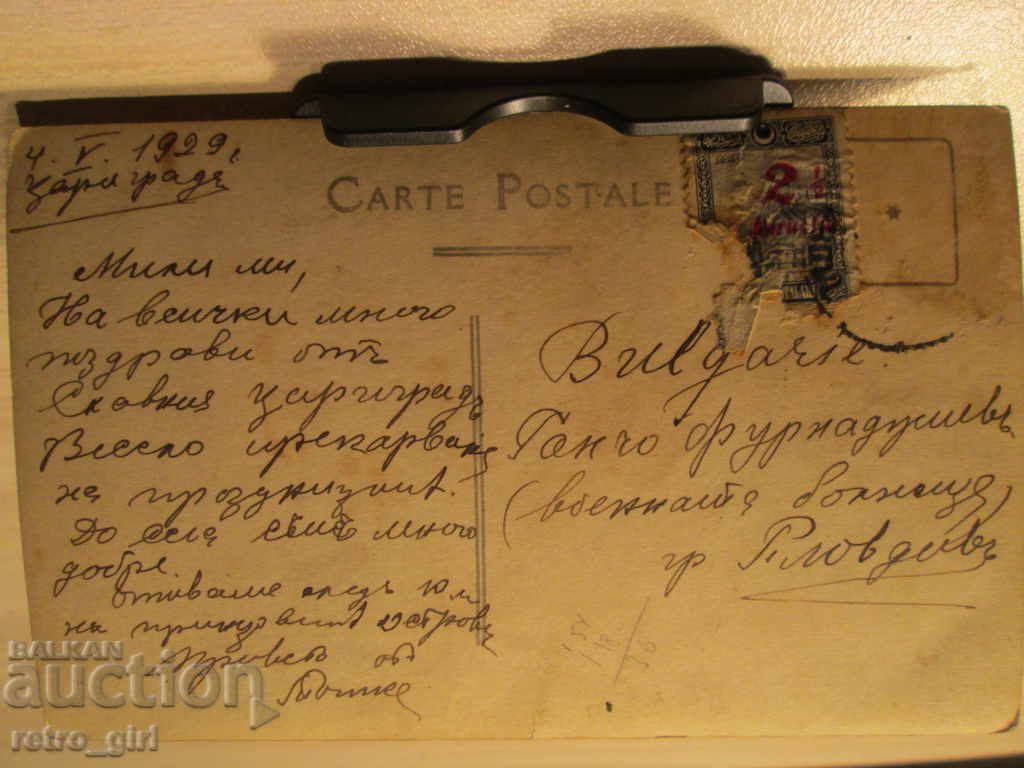 4. V. 1929.
Цариградъ
CARTE POSTALE
2 ½
Мили ми,
На всички много
поздрави отъ
Славния Цариградъ
Весело прекарване
на праздницитѣ.
До сега сѣмъ много
добре.
Отиваме следъ
на принцовитѣ островъ
Привет от
Bulgarie.
Ганчо Фурнаджиевъ
(военната болница)
гр Пловдивъ
BALKAN
auction
retro_girl